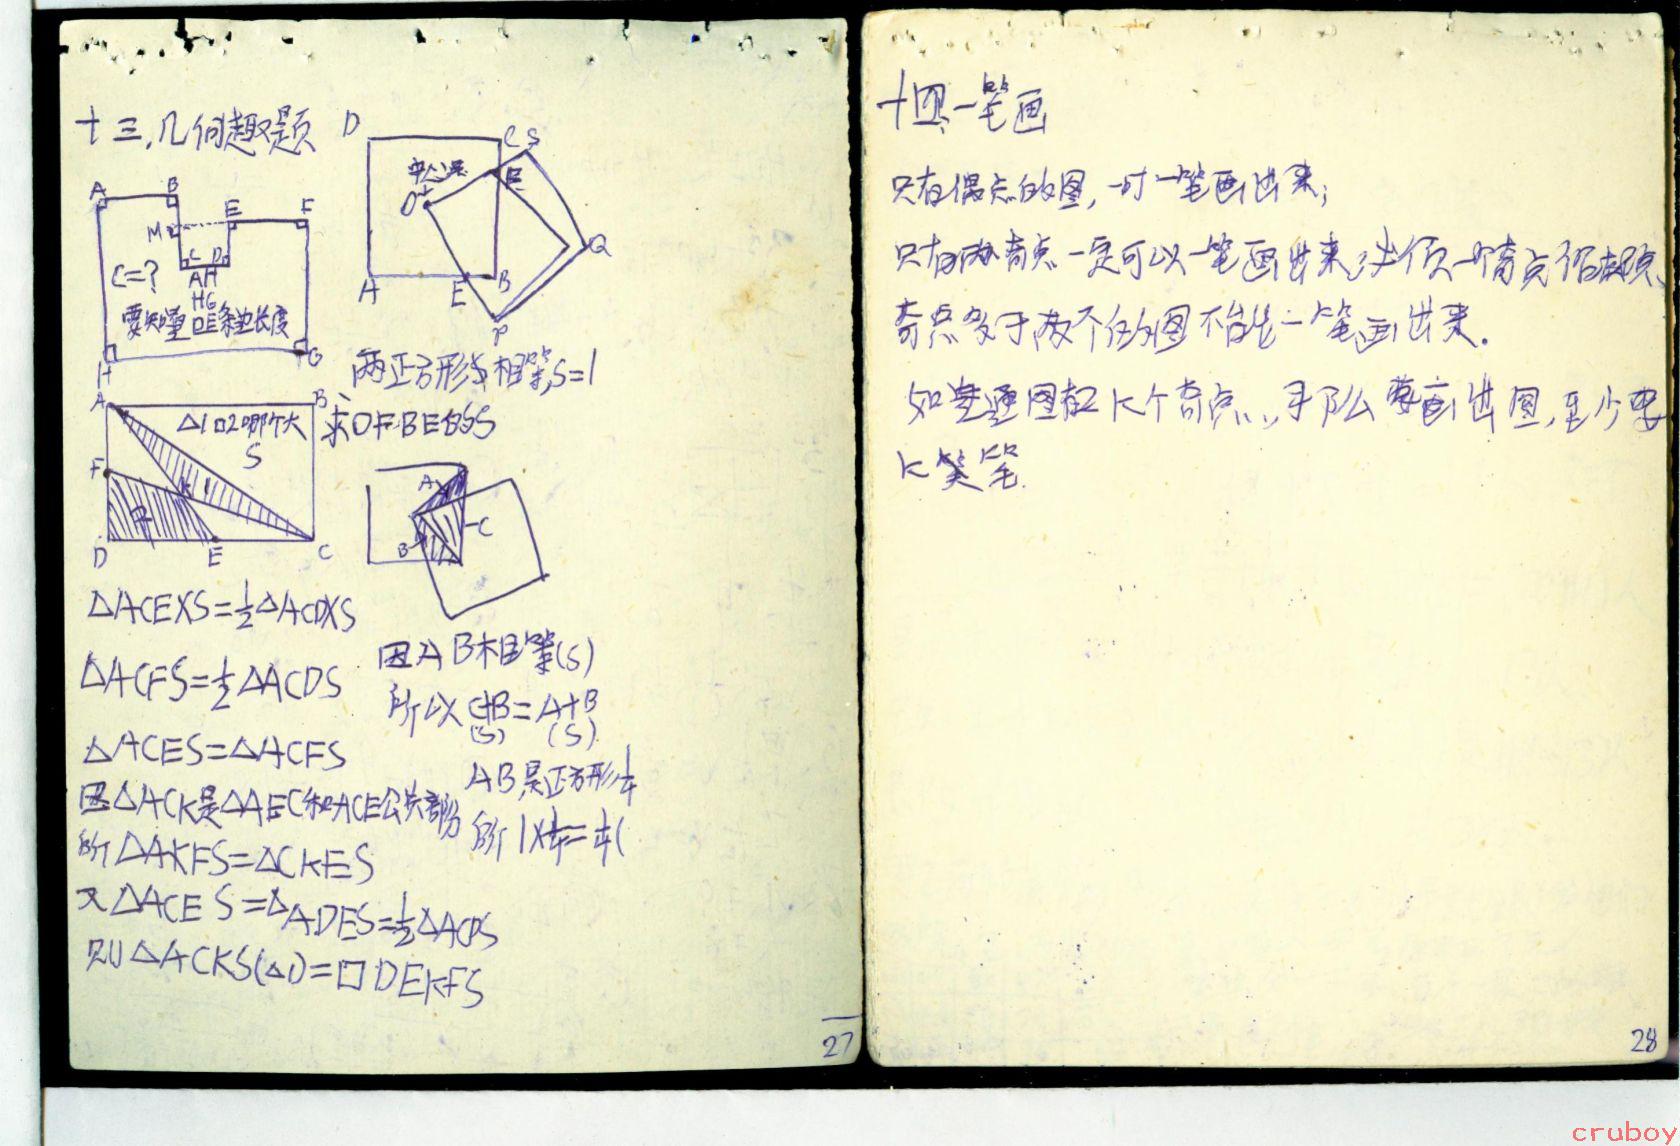 十三,几何趣题
A
B
M
E
F
C
D
C=?
AH
HG
要知量DE条边长度
H
G
D
C
S
中心是
O
F
Q
A
E
B
P
两正方形S相等,S=1
求OFBE的S
A
B
△1□2哪个大
S
F
K
1
2
D
E
C
A
B
C
△ACEXS=1/2△ACDXS
△ACFS=1/2△ACDS
△ACES=△ACFS
因△ACK是△AEC和ACE公共部份
所△AKFS=△CKES
又△ACES=△ADES=1/2△ACDS
则△ACKS(△1)=□DEKFS
因AB相等(S)
所以C+B=A+B
(S) (S)
AB,是正方形1/4
所1X1/4=1/4(
27
十四一笔画
只有偶点的图,一时一笔画出来;
只有两奇点一定可以一笔画出来,必须一个奇点作起点
奇点多于两个的图不能一笔画出来.
如连通图有K个奇点,那么要画出图,至少要
K 笔
28
cruboy